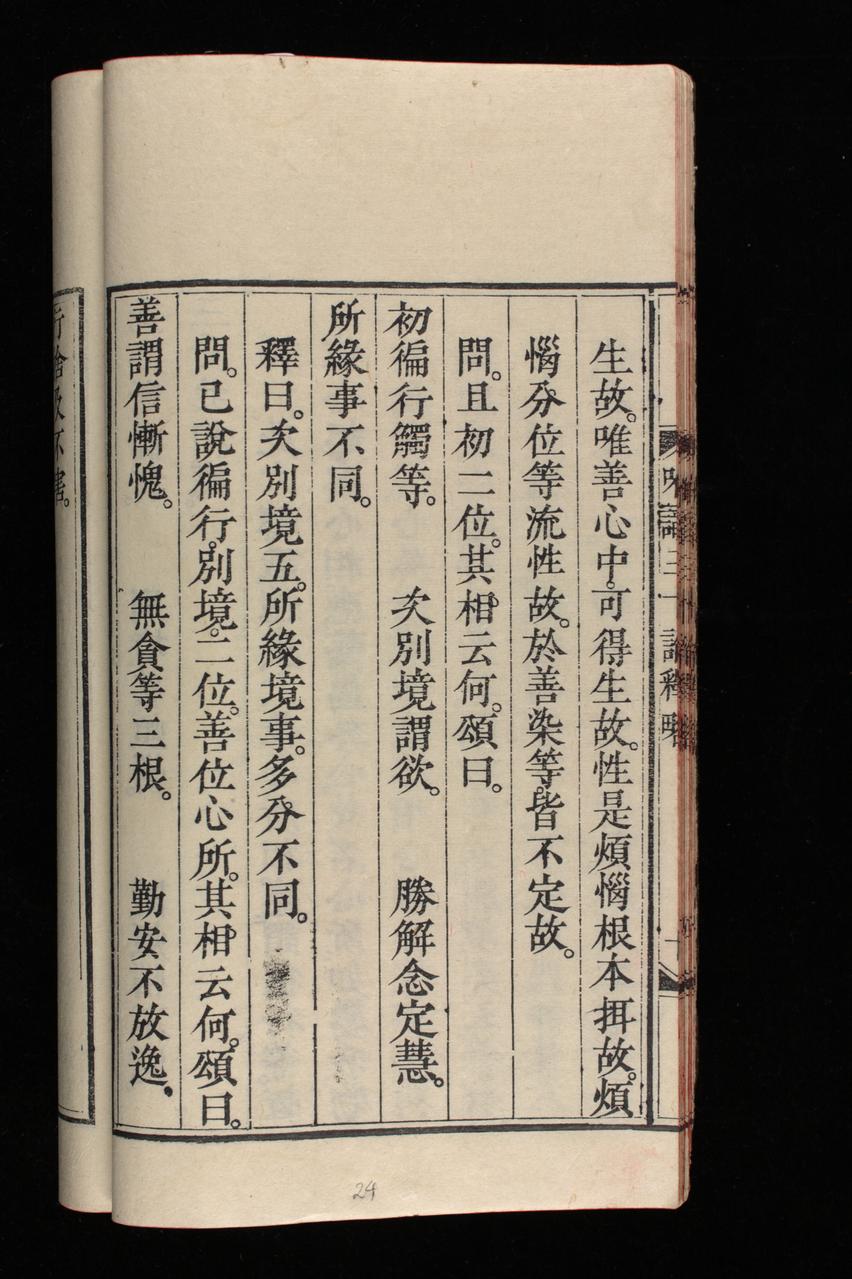 生故。唯善心中。可得生故。性是煩惱根本揖故。煩
惱分位等流性故。於善染等。皆不定故。
問。且初二位。其相云何。頌曰。
初徧行觸等。　次別境謂欲。　勝解念定慧。
所緣事不同。
釋曰。次別境五。所緣境事。多分不同。
問。已說徧行。別境。二位。善位心所。其相云何。頌曰。
善謂信慚愧。　無貪等三根。　勤安不放逸。
行捨及不害。
24